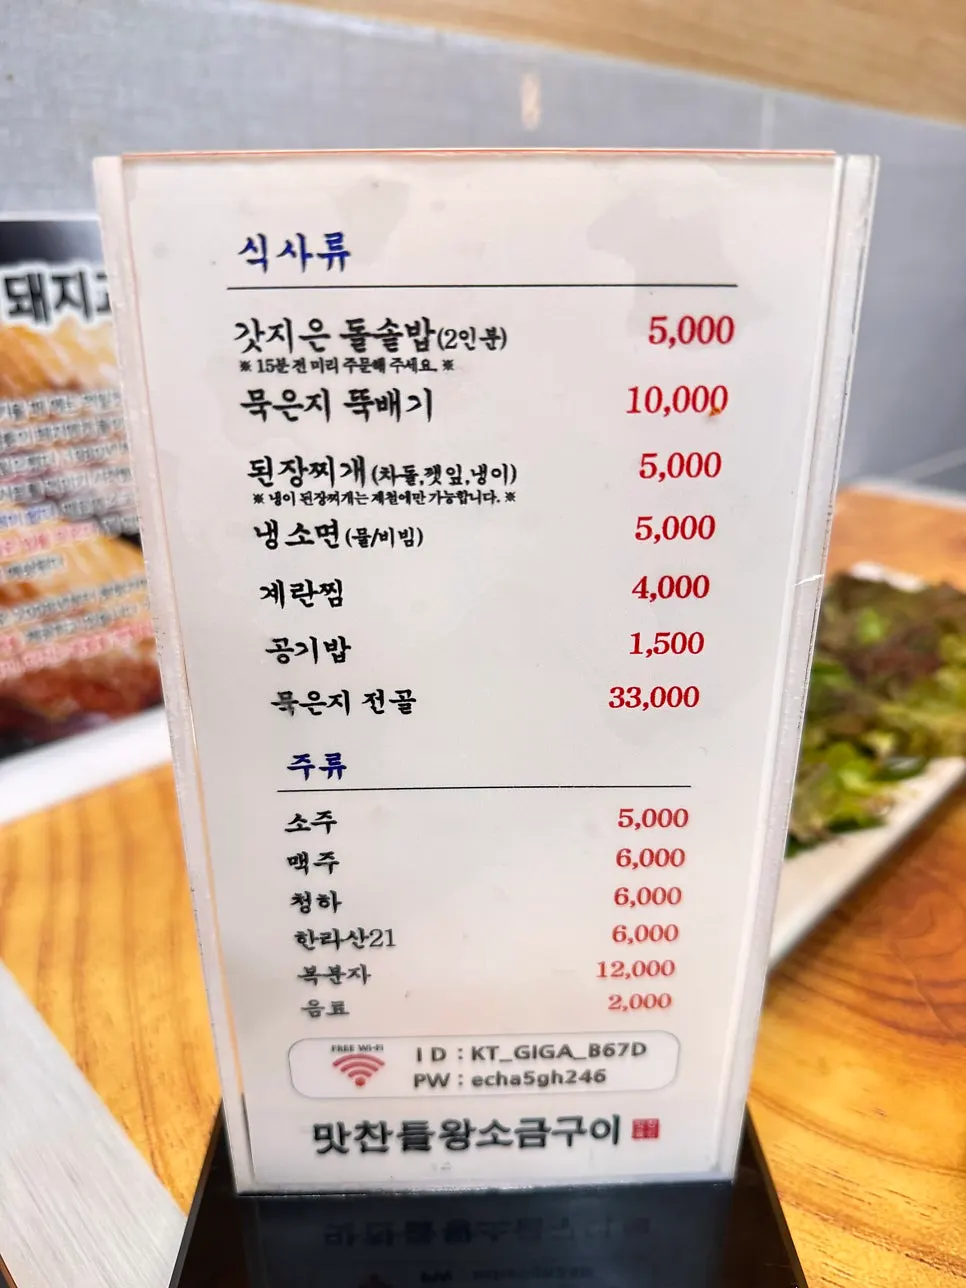 식사류
갓지은 돌솥밥(2인분) 5,000
※ 15분 전 미리 주문해 주세요. ※
묵은지 뚝배기 10,000
된장찌개(차돌,깻잎,냉이) 5,000
※ 냉이 된장찌개는 제철에만 가능합니다. ※
냉소면(물/비빔) 5,000
계란찜 4,000
공기밥 1,500
묵은지 전골 33,000
주류
소주 5,000
맥주 6,000
청하 6,000
한라산21 6,000
복분자 12,000
음료 2,000
FREE Wi-Fi
ID : KT_GIGA_B67D
PW : echa5gh246
맛찬들왕소금구이
돼지